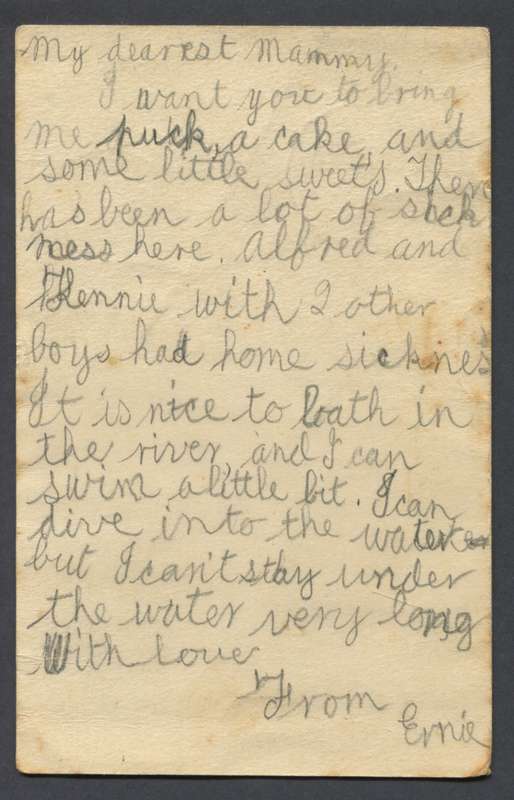 My dearest Mammy,
I want you to bring
me puck, a cake, and
some little sweets. There
has been a lot of sick
ness here. Alfred and
Kennie with 2 other
boys had home sicknes
It is nice to bath in
the river, and I can
swim a little bit. I can
dive into the water
but I can't stay under
the water very long
With love
From
Ernie